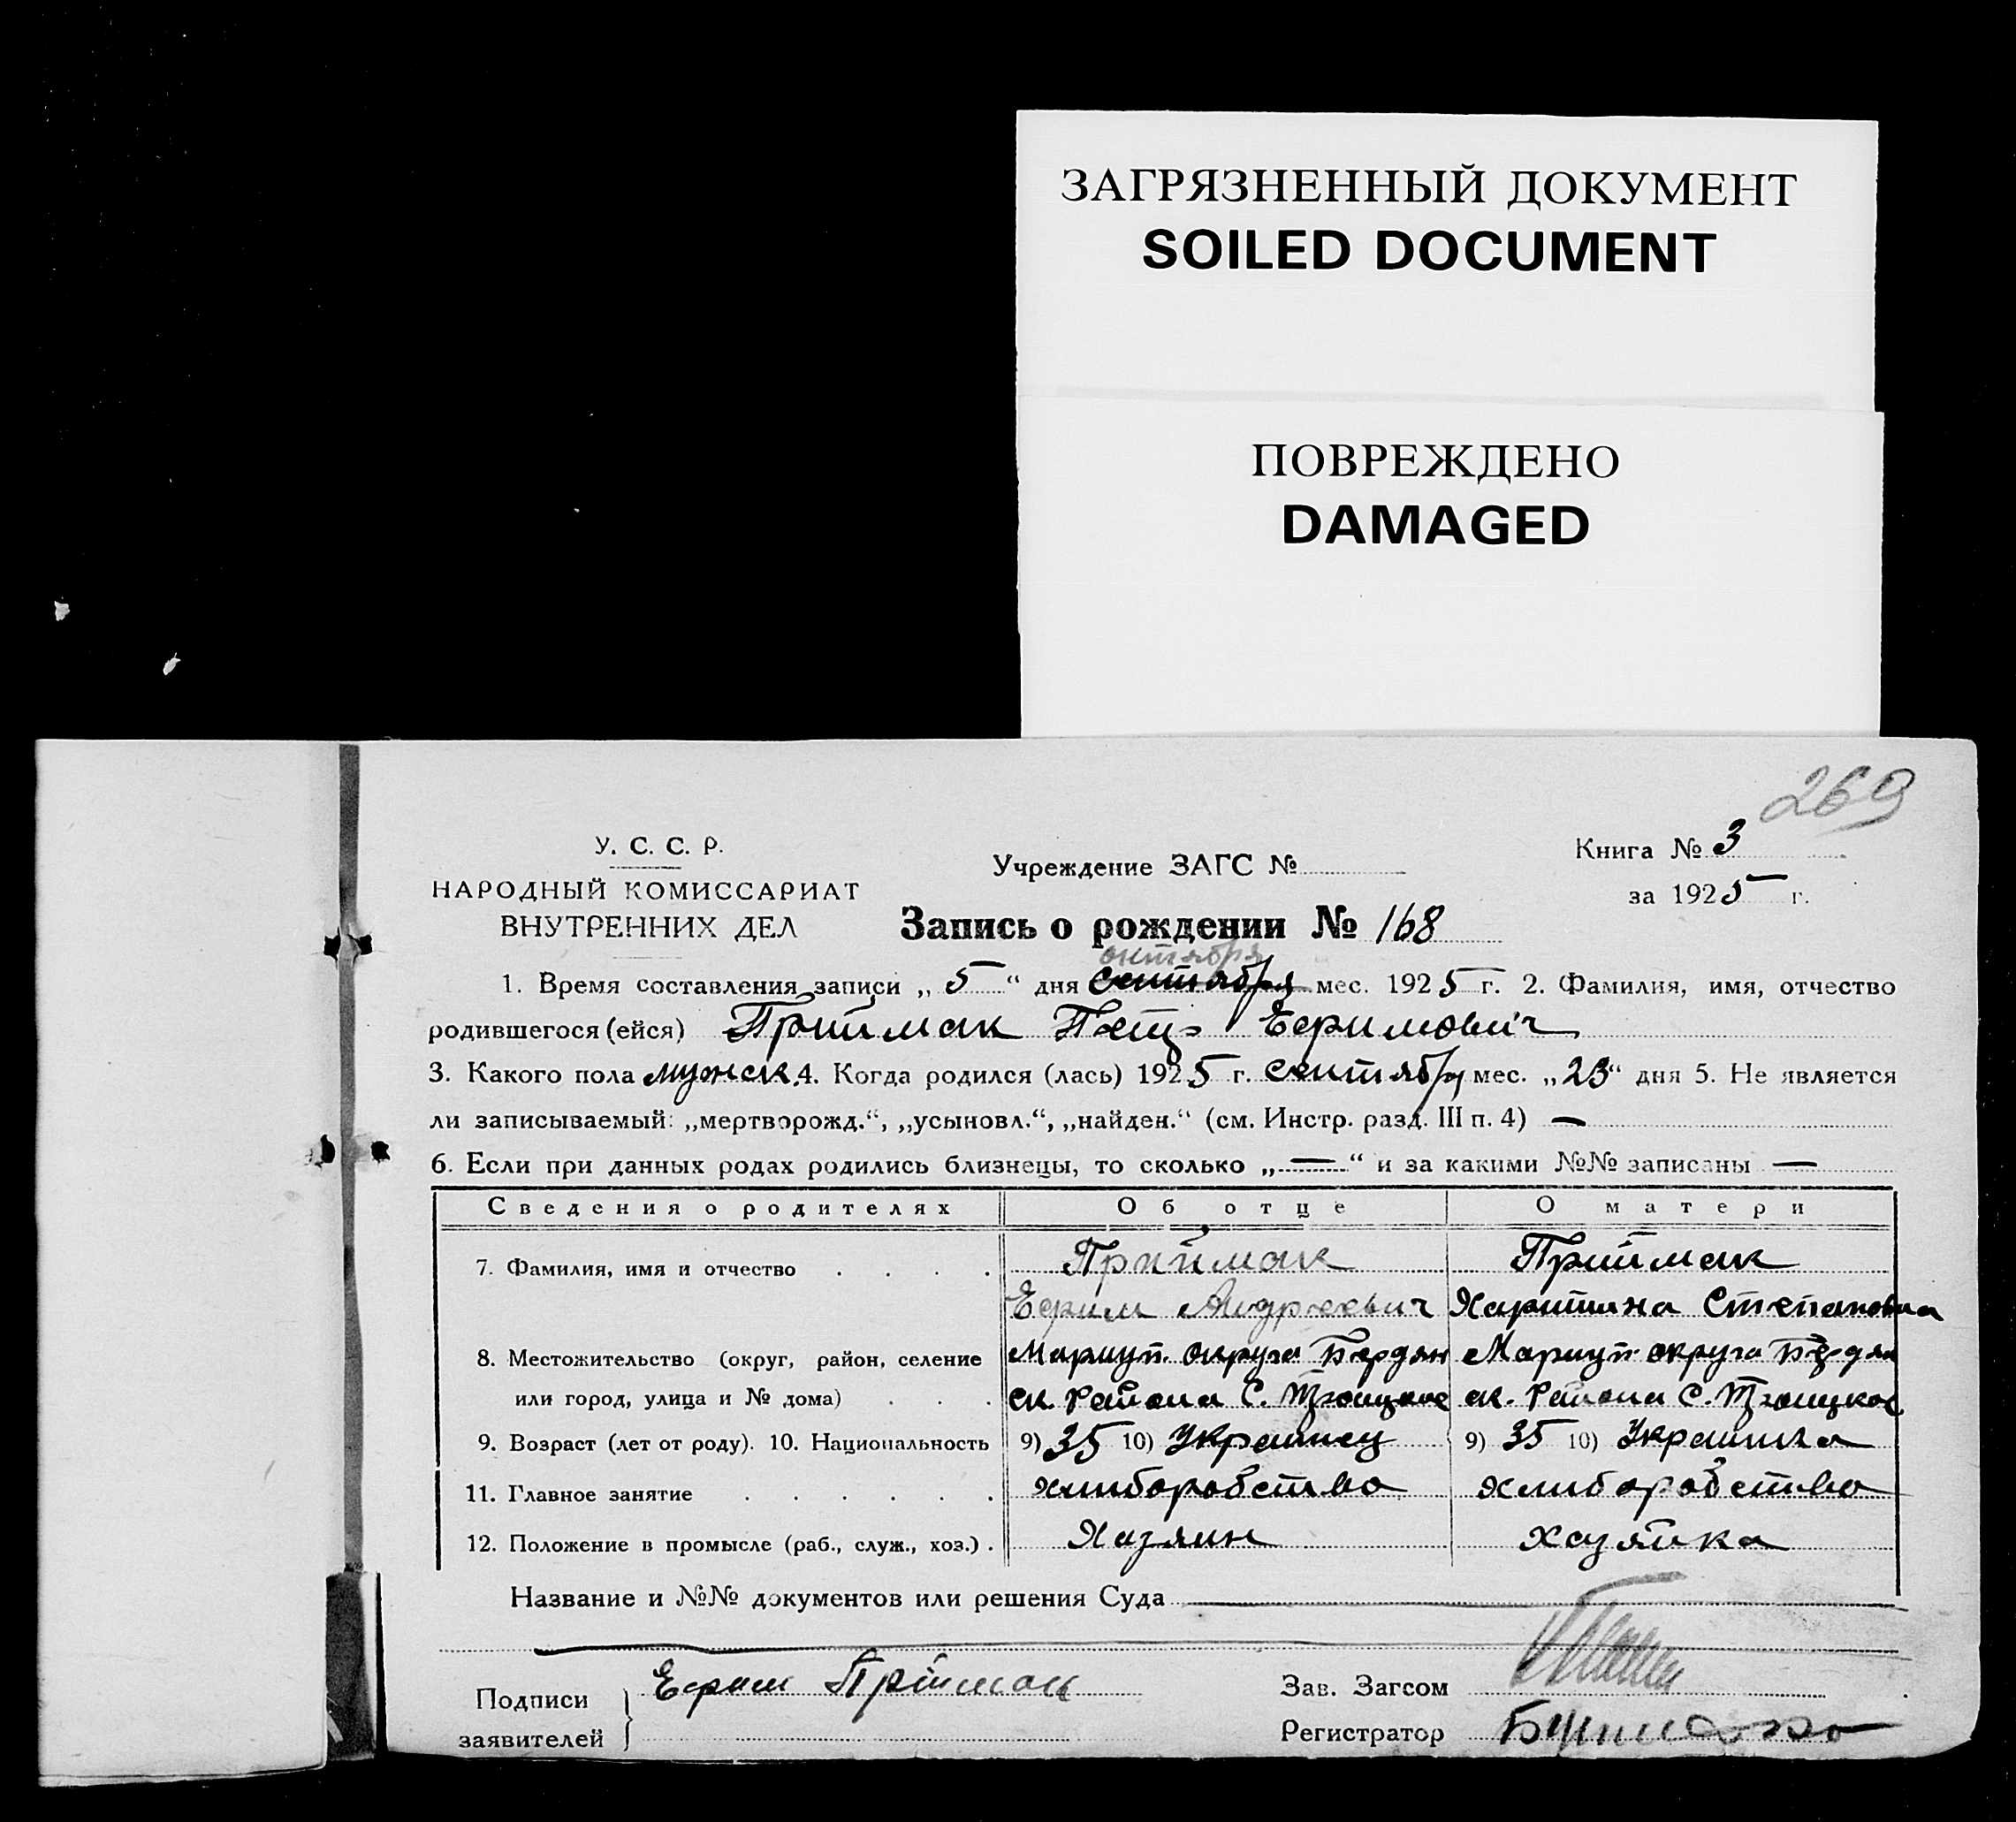 ЗАГРЯЗНЕННЫЙ ДОКУМЕНТ
SOILED DOCUMENT
ПОВРЕЖДЕНО
DAMAGED
269
У. С. С. Р.
НАРОДНЫЙ КОМИССАРИАТ
ВНУТРЕННИХ ДЕЛ
Учреждение ЗАГС №
Книга № 3
за 1925 г.
Запись о рождении № 168
октября
1. Время составления записи „ 5 “ дня сентября мес. 1925 г. 2. Фамилия, имя, отчество
родившегося (ейся) Приймак Петр Ефимович
3. Какого пола мужск. 4. Когда родился (лась) 1925 г. сентября мес. „23“ дня 5. Не является
ли записываемый: „мертворожд.“, „усыновл.“, „найден.“ (см. Инстр. разд. III п. 4) —
6. Если при данных родах родились близнецы, то сколько „—“ и за какими №№ записаны —
Сведения о родителях Об отце О матери
7. Фамилия, имя и отчество . . . . Приймак Приймак
Ефим Андреевич Харитина Степановна
8. Местожительство (округ, район, селение Мариуп. округа Бердян Мариуп. округа Бердян
или город, улица и № дома) . . . ск. района С. Троицкое ск. района С. Троицкое
9. Возраст (лет от роду). 10. Национальность 9) 35 10) Украинец 9) 35 10) Украинка
11. Главное занятие . . . . . . хлиборобство хлиборобство
12. Положение в промысле (раб., служ., хоз.) . Хазяин хазяйка
Название и №№ документов или решения Суда
Подписи
заявителей
Ефим Приймак
Зав. Загсом
Регистратор